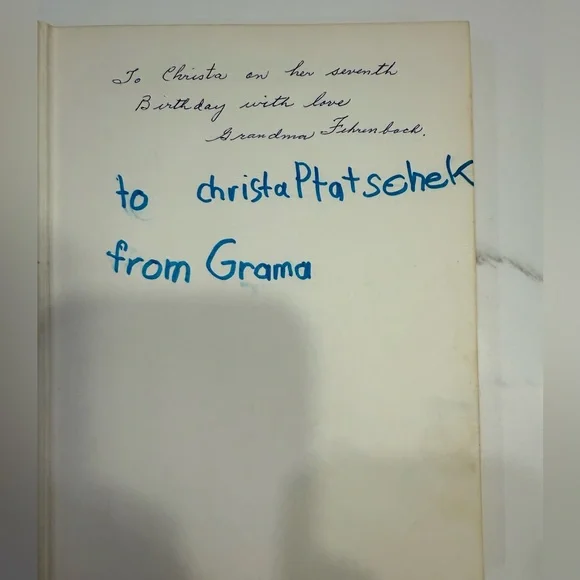 To Christa on her seventh
Birthday with love
Grandma Fehrenbach.
to christa Ptatschek
from Grama